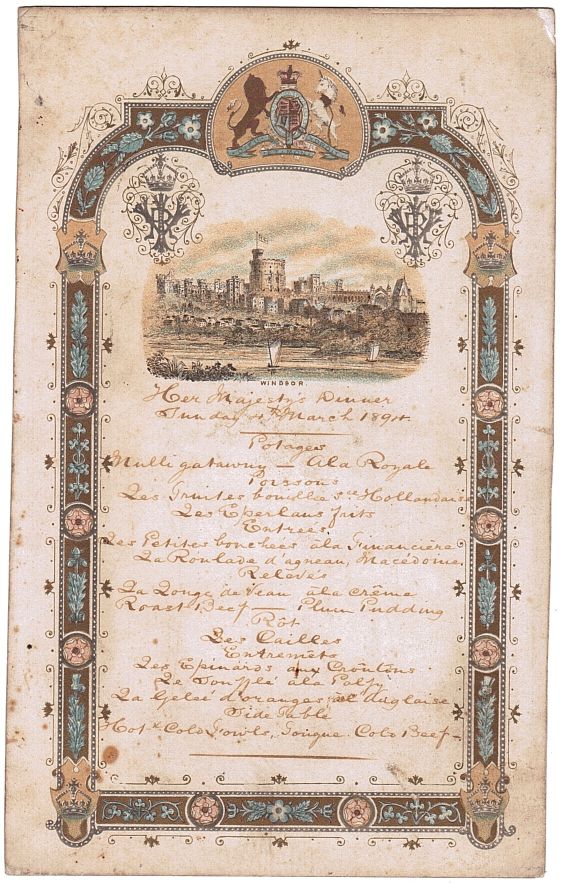 WINDSOR.
Her Majesty's Dinner
Sunday 4th March 1894.
Potages
Mulligatawny — A la Royale
Poissons
Les Truites bouillie Sce Hollandaise
Les Eperlans frits
Entrées
Les Petites bouchées à la Financière
La Roulade d'agneau, Macédoine
Relevés
La Longe de Veau à la crême
Roast Beef — Plum Pudding
Rôt
Les Cailles
Entremets
Les Epinards aux Croutons
Le Soufflé à la
La Geleé d'oranges al' Anglaise
Side Table
Hot & Cold Fowls, Tongue Cold Beef —